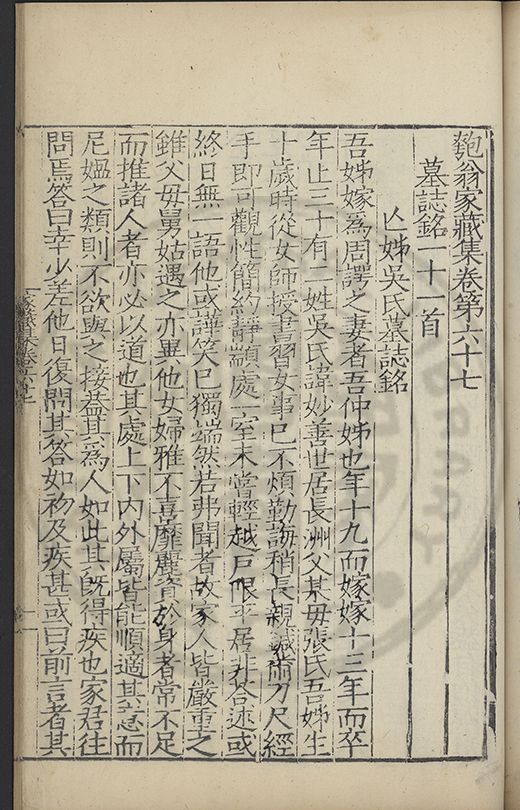 匏翁家藏集卷第六十七
墓誌銘 十一首
亡姊吳氏墓誌銘
吾姊嫁為周諤之妻者吾仲姊也年十九而嫁嫁十三年而卒
年止三十有二姓吳氏諱妙善世居長洲父某母張氏吾姊生
十歲時從女師授書習女事已不煩勤誨稍長親諴幂刀尺經
手即可觀性簡約靜顓處一室未嘗輕越戶限平居非答述或
終日無一語他或譁笑已獨端然若弗聞者故家人皆嚴重之
雖父母舅姑遇之亦異他女婦雅不喜靡麗資於身者常不足
而推諸人者亦必以道也其處上下內外屬皆能順適其志而
尼媼之類則不欲與之接葢其為人如此其既得疾也家君往
問焉答曰幸少差他日復問其答如初及疾甚或曰前言者其